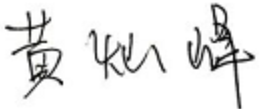 黄灿峰